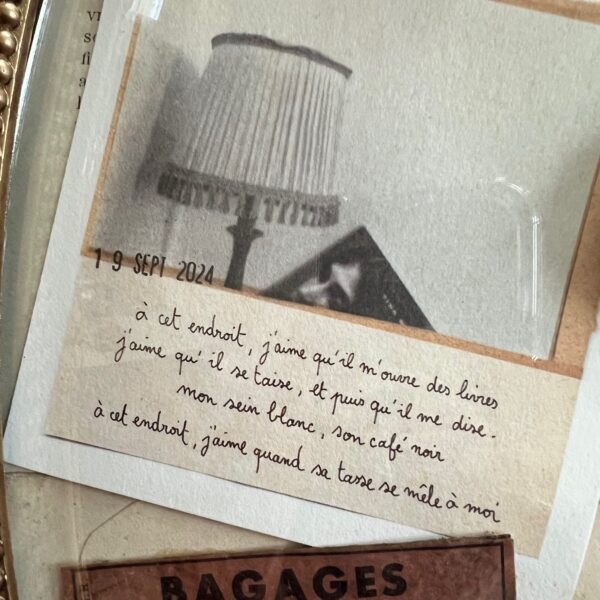 19 SEPT 2024
à cet endroit, j'aime qu'il m'ouvre des livres
j'aime qu'il se taise, et puis qu'il me dise.
mon sein blanc, son café noir
à cet endroit, j'aime quand sa tasse se mêle à moi
BAGAGES